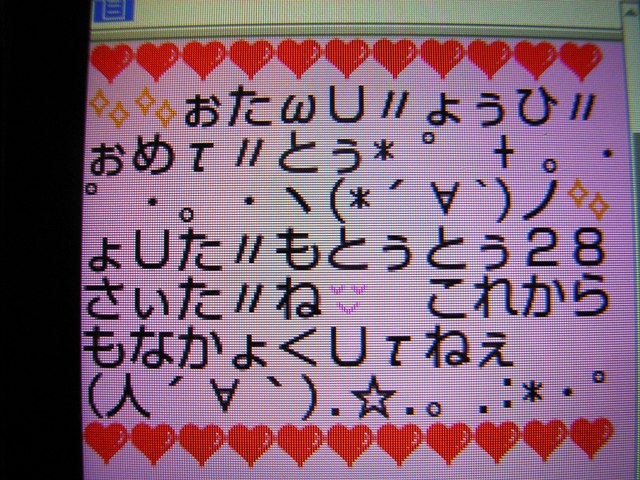 ❤❤❤❤❤❤❤❤❤❤❤
✧✧ぉたωU〃ょぅひ〃
ぉめτ〃とぅ*゜ †。・
゜・。・ヽ(*´∀`)ノ✧
ょUた〃もとぅとぅ28
さぃた〃ね これから
もなかょくUτねぇ
(人´∀`).☆.。.:*・゜
❤❤❤❤❤❤❤❤❤❤❤